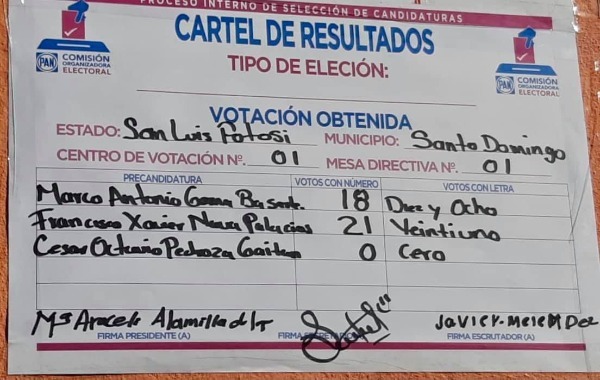 PROCESO INTERNO DE SELECCIÓN DE CANDIDATURAS
CARTEL DE RESULTADOS
TIPO DE ELECIÓN:
PAN COMISIÓN ORGANIZADORA ELECTORAL
PAN COMISIÓN ORGANIZADORA ELECTORAL
VOTACIÓN OBTENIDA
ESTADO: San Luis Potosi MUNICIPIO: Santo Domingo
CENTRO DE VOTACIÓN Nº. 01 MESA DIRECTIVA Nº. 01
PRECANDIDATURA VOTOS CON NÚMERO VOTOS CON LETRA
Marco Antonio 18 Diez y Ocho
Francisco Xavier Nava Palacios 21 Veintiuno
Cesar Octavio Pedroza Gaitan 0 Cero
Mª Araceli Alamilla
FIRMA PRESIDENTE (A) FIRMA SECRETARIO (A) FIRMA ESCRUTADOR (A)